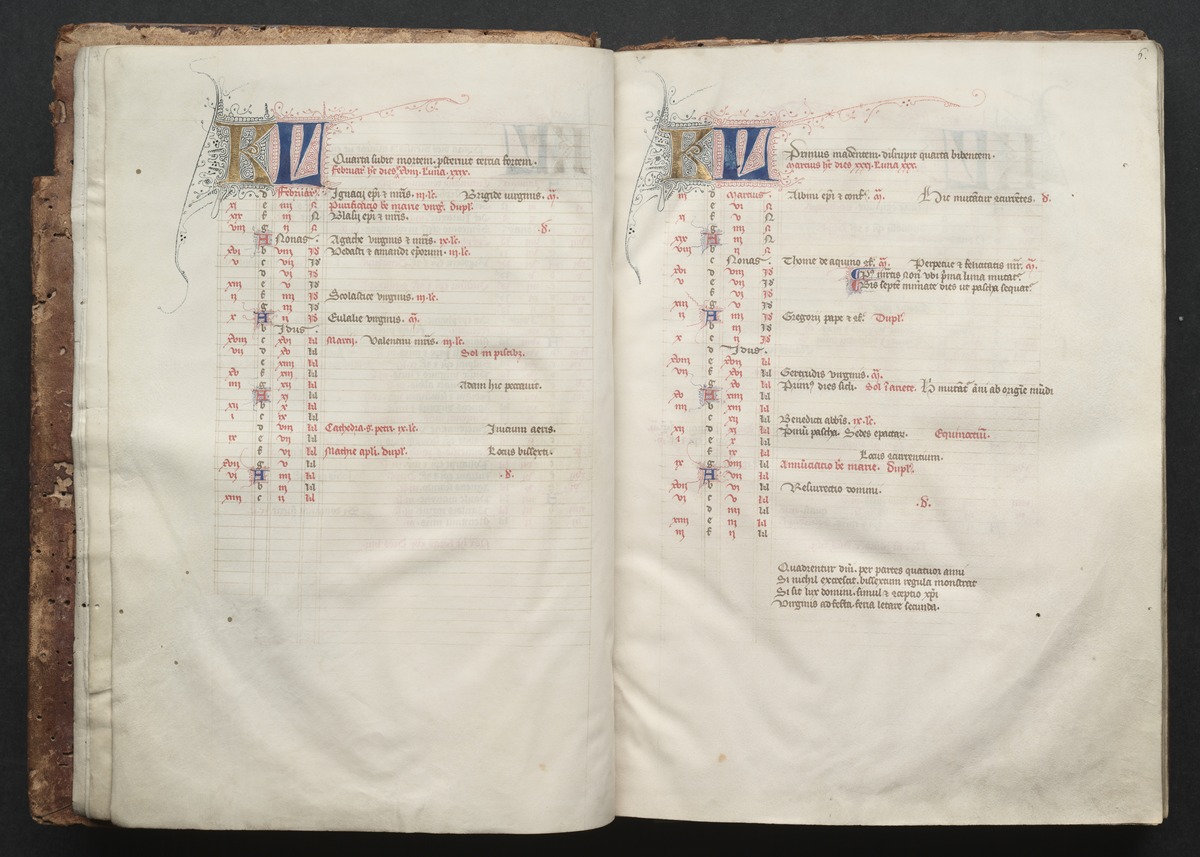 KL
Quarta subit mortem. psternit tercia fortem.
Februar' ht dies xxviii. Luna. xxix.
d Februar'. Ignatij epi & mris. iii. lc. Brigide virginis. m.
xi e iiii N Purificatio be marie virg. dupl.
xix f iii N Blasij epi & mris.
viii g ii N .d.
A Nonas. Agathe virginis & mris. ix. lc.
xvi b viii Id Vedasti & amandi eporum. iii. lc.
v c vii Id
d vi Id
xiii e v Id
ii f iiii Id Scolastice virginis. iii. lc.
g iii Id
x A ii Id Eulalie virginis. m.
b Idus.
xviii c xvi kl Marcii. Valentini mris. iii. lc.
vii d xv kl Sol in piscibz.
e xiiii kl
xv f xiii kl
iiii g xii kl Adam hic peccauit.
A xi kl
xii b x kl
i c ix kl
d viii kl Cathedra. s. petri. ix. lc. Inicium aeris.
ix e vii kl
f vi kl Mathie apli. dupl. Locus bissexti.
xvii g v kl
vi A iiii kl .d.
b iii kl
xiiii c ii kl
6.
KL
Primus madentem. disrupit quarta bibentem.
Marcius ht dies xxxi. Luna xxx.
iii d Marcius. Albini epi & conf. m. Hic mutantur concurrentes. d.
e vi N
xi f v N
g iiii N
xix A iii N
viii b ii N
c Nonas. Thome de aquino cf. m. Perpetue & felicitatis mr. m.
xvi d viii Id Post martis non' vbi prima luna mutat'
v e vii Id Bis septem numerate dies ut pascha sequat'
f vi Id
xiii g v Id
ii A iiii Id Gregorij pape & cf. Dupl.
b iii Id
x c ii Id
d Idus.
xviii e xvii kl
vii f xvi kl Gertrudis virginis. m.
g xv kl Primus dies scli. Sol in ariete. Hic mutant' ani ab origine mundi
xv A xiiii kl
iiii b xiii kl
c xii kl Benedicti abbis. ix. lc.
xii d xi kl Primum pascha. Sedes epactar. Equinoctiu.
i e x kl
f ix kl Locus concurrentium.
ix g viii kl Annuciatio be marie. Dupl.
A vii kl
xvii b vi kl Resurrectio domini.
vi c v kl .d.
d iiii kl
xiiii e iii kl
iii f ii kl
Quadrentur dni. per partes quatuor anni
Si nichil excrescit. bissextum regula monstrat
Si sit lux domini. simul & conceptio xpi
Virginis ad festa. feria letare secunda.